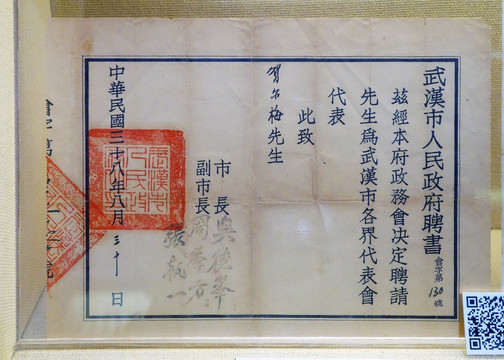 武漢市人民政府聘書
會字第130號
茲經本府政務會决定聘請
先生爲武漢市各界代表會
代表
此致
賀名梅先生
市長 吳德峯
副市長 周季方
張執一
中華民國三十八年八月三十日
會字第